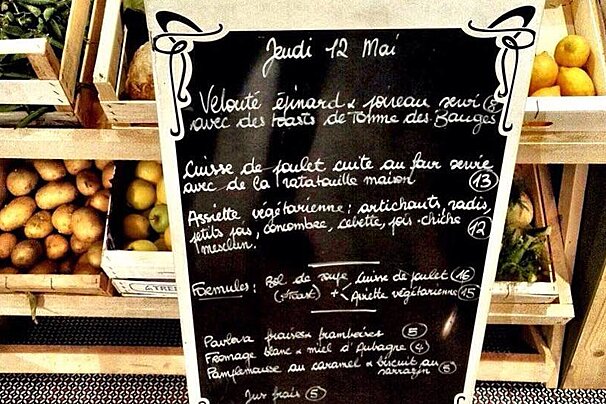 Jeudi 12 Mai
Velouté épinard & poireau servi 8
avec des toasts de Tomme des Bauges
Cuisse de poulet cuite au four servie
avec de la ratatouille maison 13
Assiette végétarienne : artichauts, radis,
petits pois, concombre, cebette, pois-chiche 12
mesclun.
Formules : Bol de soupe Cuisse de poulet 16
(+toast) + < Assiette végétarienne 15
Pavlova fraises framboises 5
Fromage blanc & miel d'Aubagne 4
Pamplemousse au caramel & biscuit au
sarrazin 5
Jus frais 5